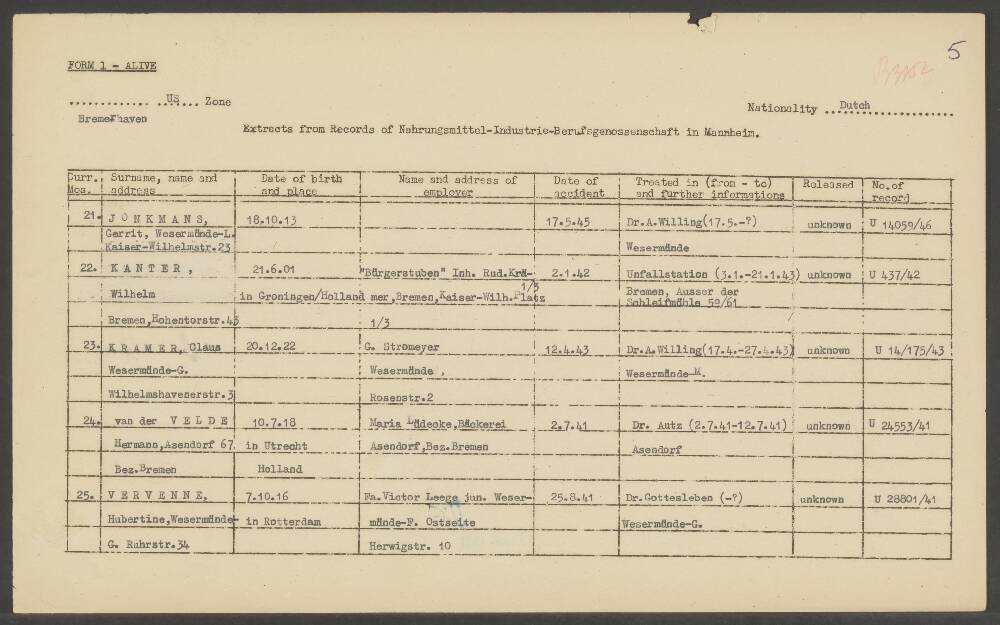 5
FORM 1 - ALIVE
US Zone
Bremerhaven
Nationality Dutch
Extracts from Records of Nahrungsmittel-Industrie-Berufsgenossenschaft in Mannheim.
Curr. Nos. Surname, name and address Date of birth and place Name and address of employer Date of accident Treated in (from - to) and further informations Released No. of record
21. JONKMANS, 18.10.13 17.5.45 Dr.A.Willing(17.5.-?) unknown U 14059/46
Gerrit, Wesermünde-L.
Kaiser-Wilhelmstr.23 Wesermünde
22. KANTER, 21.6.01 "Bürgerstuben" Inh. Rud.Krä- 2.1.42 Unfallstation (3.1.-21.1.43) unknown U 437/42
1/3
Wilhelm in Groningen/Holland mer,Bremen,Kaiser-Wilh.Platz Bremen, Ausser der
Schleifmühle 59/61
Bremen,Hohentorstr.43 1/3
23. KRAMER, Claus 20.12.22 G. Stromeyer 12.4.43 Dr.A.Willing(17.4.-27.4.43) unknown U 14/175/43
Wesermünde-G. Wesermünde, Wesermünde-M.
Wilhelmshavenerstr.3 Rosenstr.2
24. van der VELDE 10.7.18 Maria Lüdecke,Bäckerei 2.7.41 Dr. Autz (2.7.41-12.7.41) unknown U 24553/41
Hermann,Asendorf 67 in Utrecht Asendorf,Bez.Bremen Asendorf
Bez.Bremen Holland
25. VERVENNE, 7.10.16 Fa.Victor Leege jun. Weser- 25.8.41 Dr.Gottesleben (-?) unknown U 28801/41
Hubertine,Wesermünde- in Rotterdam münde-F. Ostseite Wesermünde-G.
G. Ruhrstr.34 Herwigstr. 10